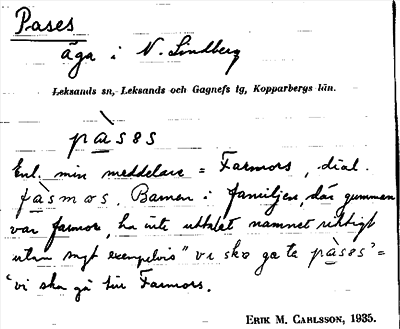 Pases
äga i N. Lindberg
Leksands sn, Leksands och Gagnefs tg, Kopparbergs län.
pàsɘs
Enl. min meddelare = Farmors, dial.
fàsmɷs. Barnen i familjen, där gumman
var farmor, ha inte uttalat namnet riktigt
utan sagt exempelvis "vi ska gɷ ta pàsɘs" =
"vi ska gå till Farmors.
ERIK M. CARLSSON, 1935.